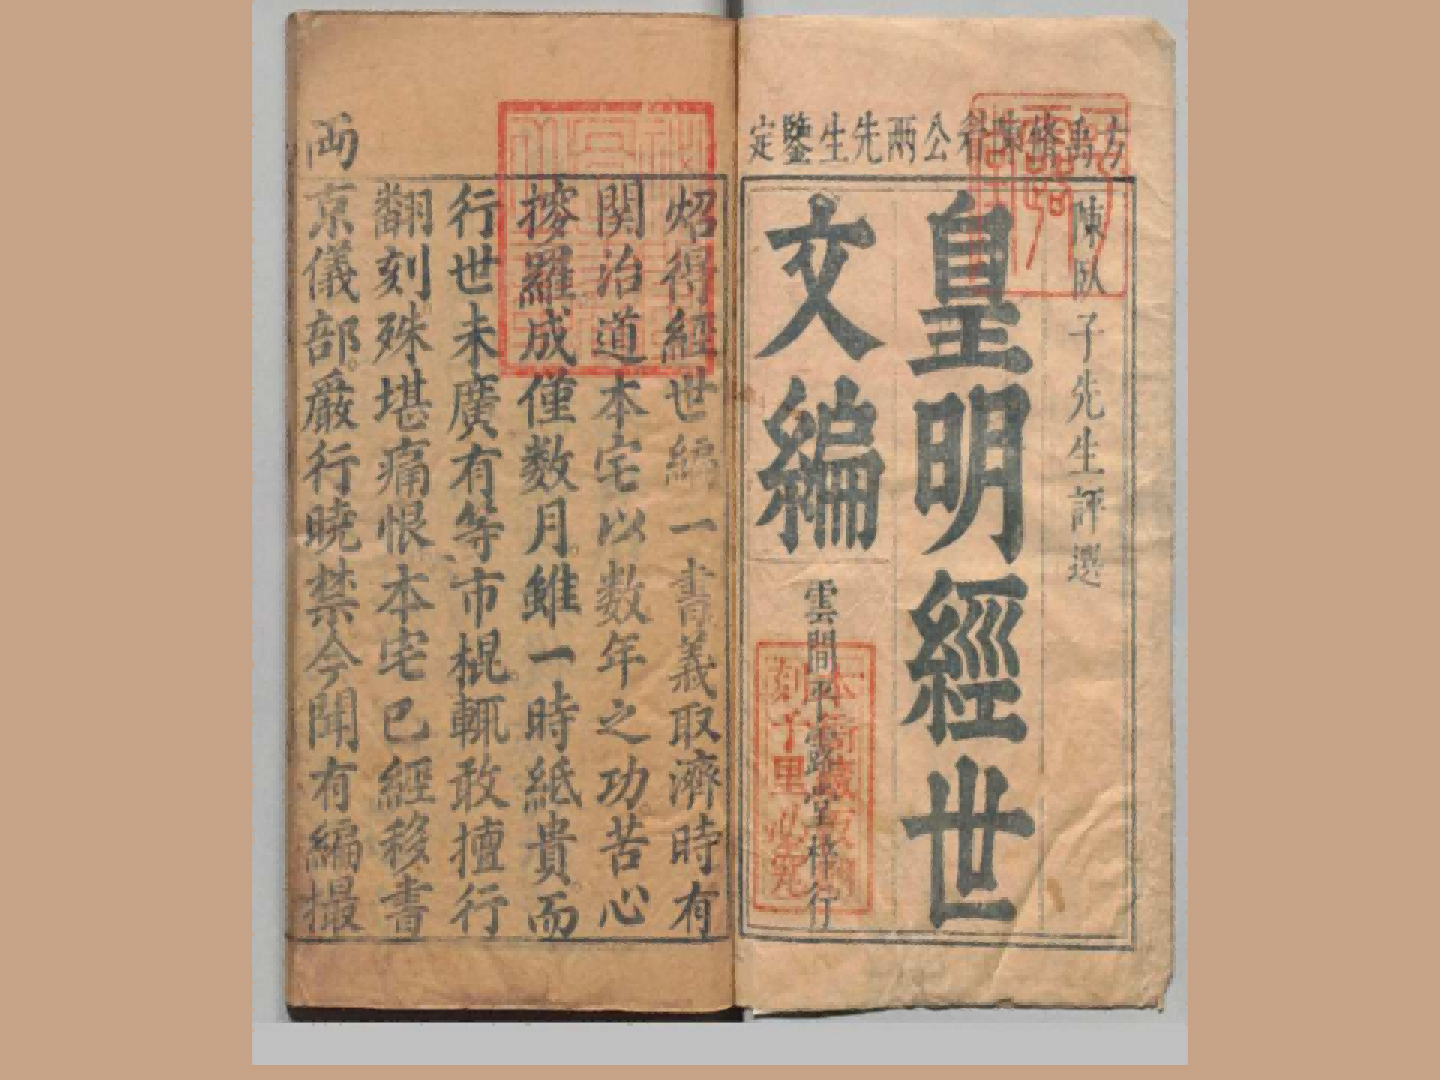 方禹脩陳眉公兩先生鑒定
陳臥子先生評選
皇明經世
文編
雲間平露堂梓行
本衙藏板翻
刻千里必究
炤得經世編一書義取濟時有
関治道本宅以数年之功苦心
搜羅成僅数月雖一時紙貴而
行世未廣有等市棍輒敢擅行
翻刻殊堪痛恨本宅已經移書
兩京儀部嚴行曉禁今聞有編撮